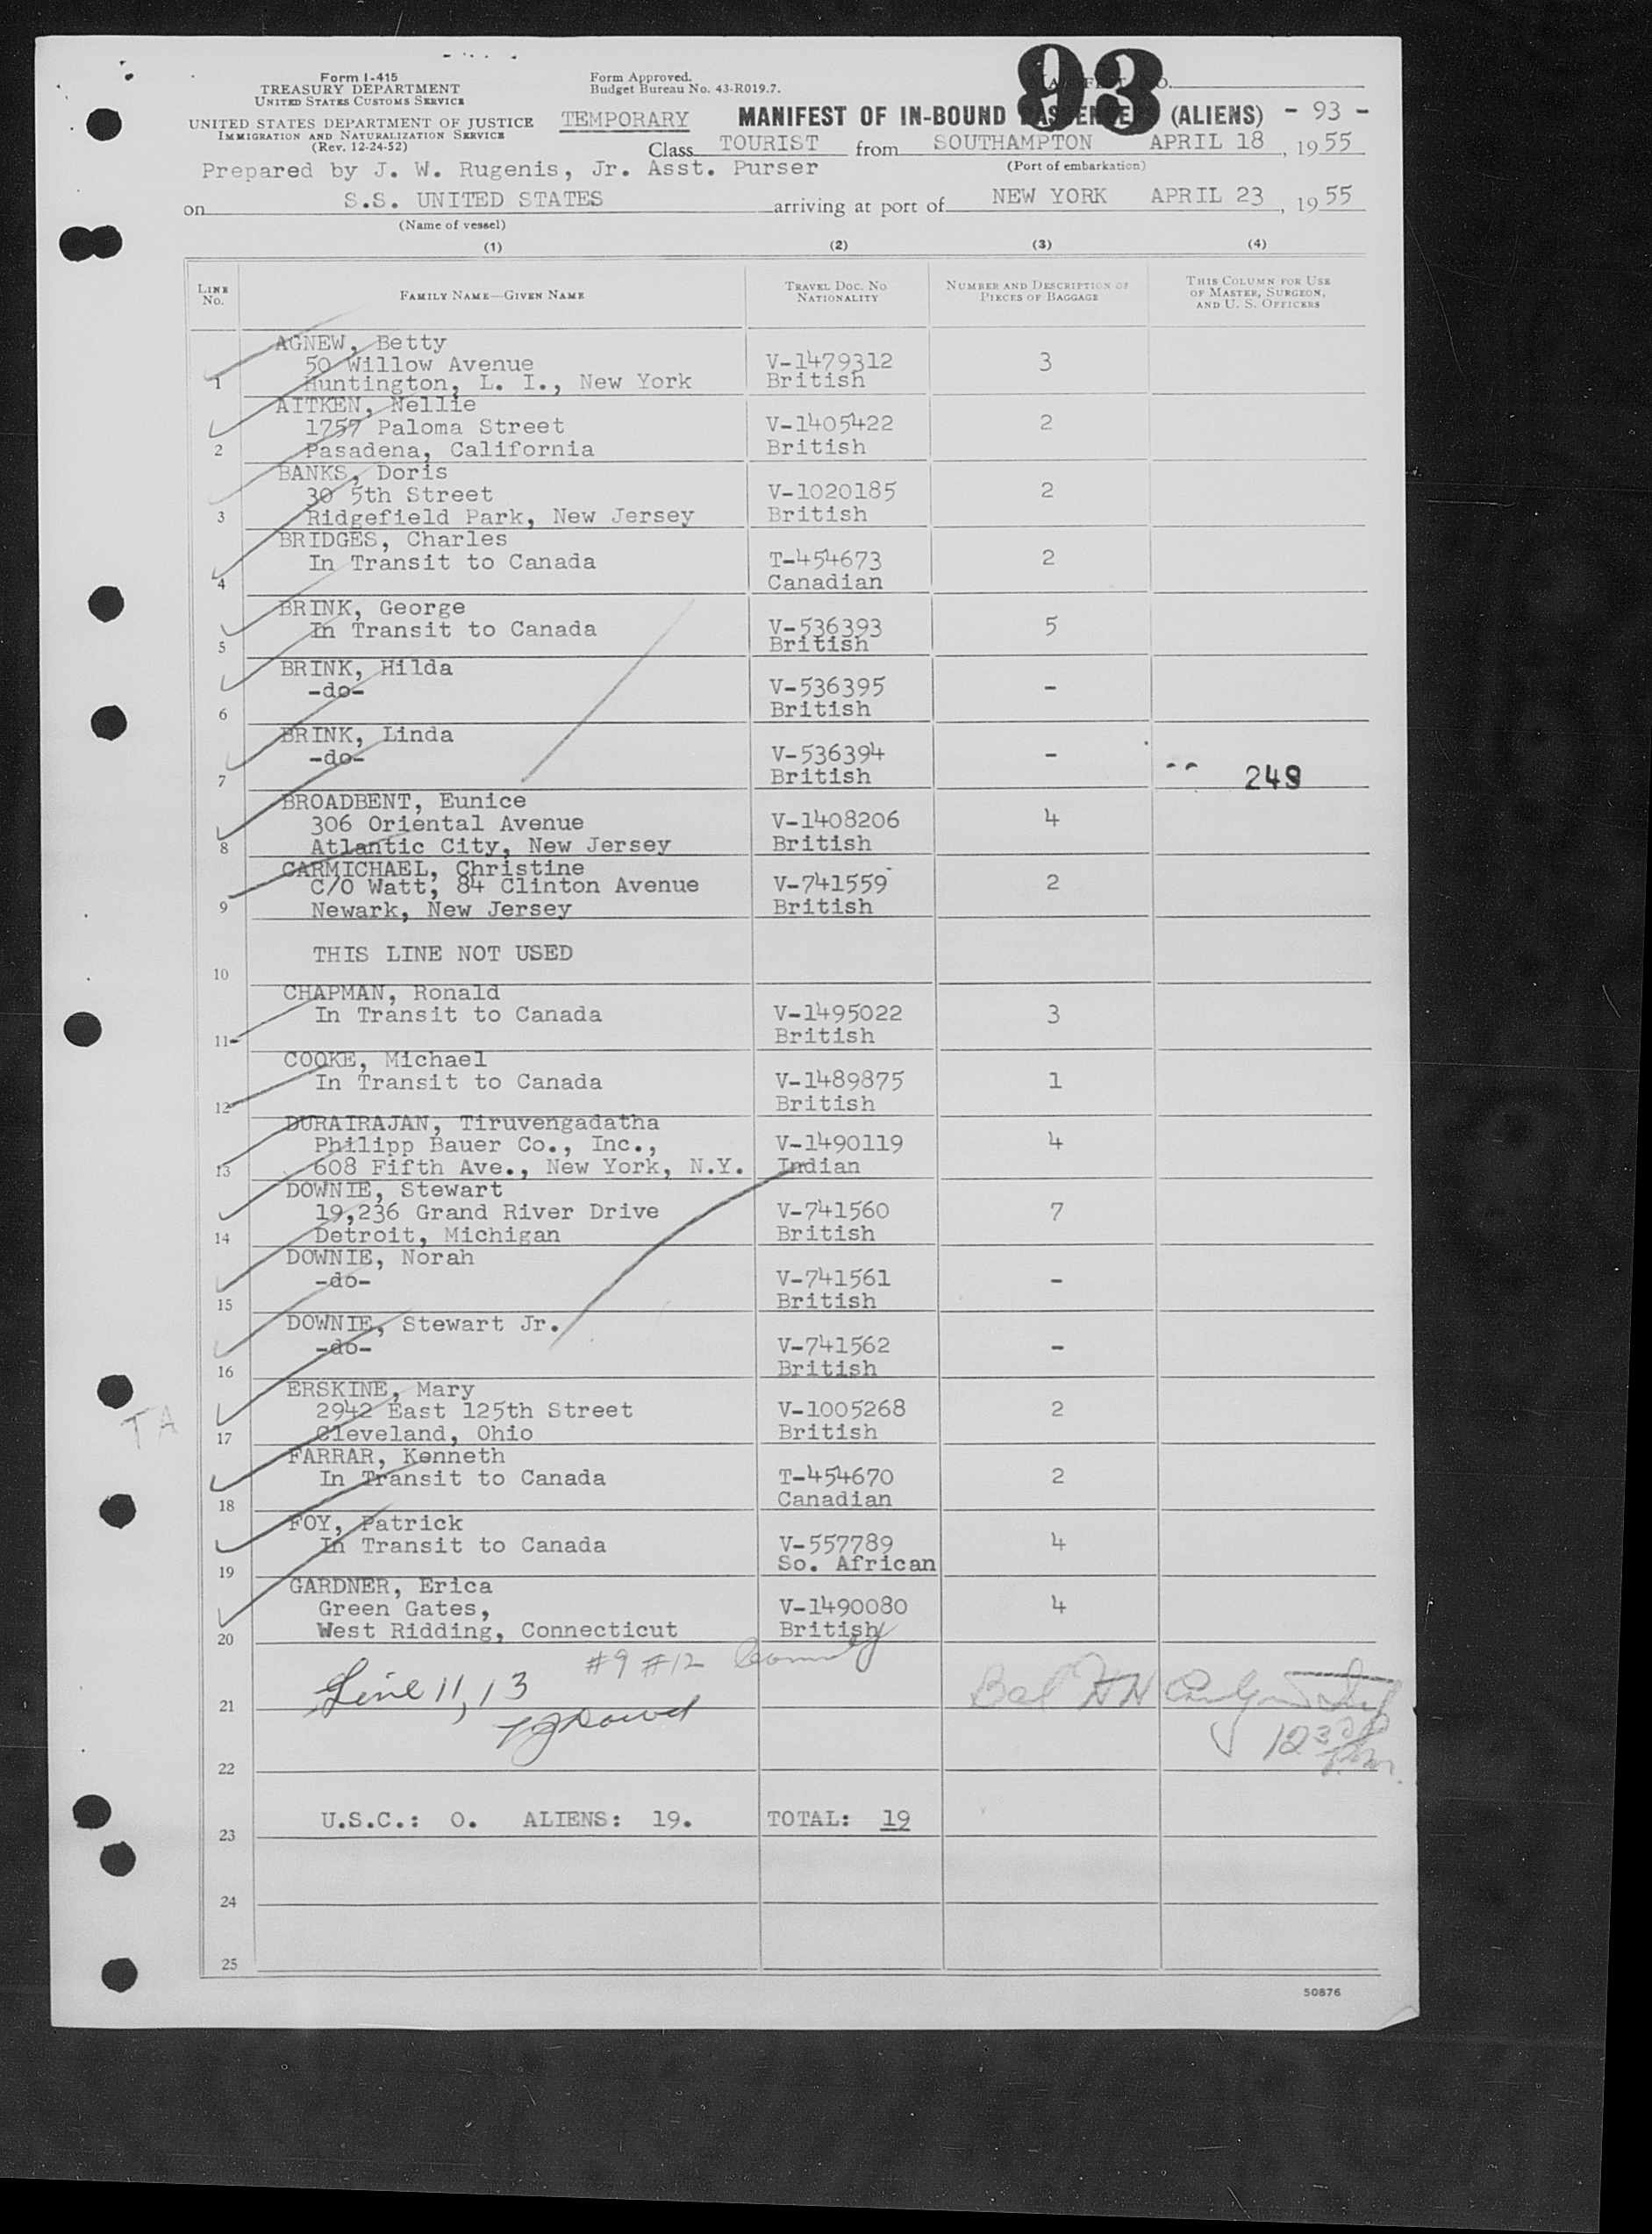 93
Form I-415
TREASURY DEPARTMENT
UNITED STATES CUSTOMS SERVICE
UNITED STATES DEPARTMENT OF JUSTICE
IMMIGRATION AND NATURALIZATION SERVICE
(Rev. 12-24-52)
Form Approved.
Budget Bureau No. 43-R019.7.
TEMPORARY MANIFEST OF IN-BOUND PASSENGERS (ALIENS) - 93 -
Class TOURIST from SOUTHAMPTON APRIL 18, 1955
(Port of embarkation)
Prepared by J. W. Rugenis, Jr. Asst. Purser
on S.S. UNITED STATES arriving at port of NEW YORK APRIL 23, 1955
(Name of vessel)
(1) (2) (3) (4)
LINE No. FAMILY NAME—GIVEN NAME TRAVEL DOC. NO NATIONALITY NUMBER AND DESCRIPTION OF PIECES OF BAGGAGE THIS COLUMN FOR USE OF MASTER, SURGEON, AND U. S. OFFICERS
AGNEW, Betty
50 Willow Avenue V-1479312 3
1 Huntington, L. I., New York British
AITKEN, Nellie
1757 Paloma Street V-1405422 2
2 Pasadena, California British
BANKS, Doris
30 5th Street V-1020185 2
3 Ridgefield Park, New Jersey British
BRIDGES, Charles
In Transit to Canada T-454673 2
4 Canadian
BRINK, George
In Transit to Canada V-536393 5
5 British
BRINK, Hilda
-do- V-536395 -
6 British
BRINK, Linda
-do- V-536394 -
7 British 249
BROADBENT, Eunice
306 Oriental Avenue V-1408206 4
8 Atlantic City, New Jersey British
CARMICHAEL, Christine
C/O Watt, 84 Clinton Avenue V-741559 2
9 Newark, New Jersey British
THIS LINE NOT USED
10
CHAPMAN, Ronald
In Transit to Canada V-1495022 3
11 British
COOKE, Michael
In Transit to Canada V-1489875 1
12 British
DURAIRAJAN, Tiruvengadatha
Philipp Bauer Co., Inc., V-1490119 4
13 608 Fifth Ave., New York, N.Y. Indian
DOWNIE, Stewart
19,236 Grand River Drive V-741560 7
14 Detroit, Michigan British
DOWNIE, Norah
-do- V-741561 -
15 British
DOWNIE, Stewart Jr.
-do- V-741562 -
16 British
ERSKINE, Mary
2942 East 125th Street V-1005268 2
TA
17 Cleveland, Ohio British
FARRAR, Kenneth
In Transit to Canada T-454670 2
18 Canadian
FOY, Patrick
In Transit to Canada V-557789 4
19 So. African
GARDNER, Erica
Green Gates, V-1490080 4
20 West Ridding, Connecticut British
#9 #12
Line 11, 13
21
22
U.S.C.: 0. ALIENS: 19. TOTAL: 19
23
24
25
50876